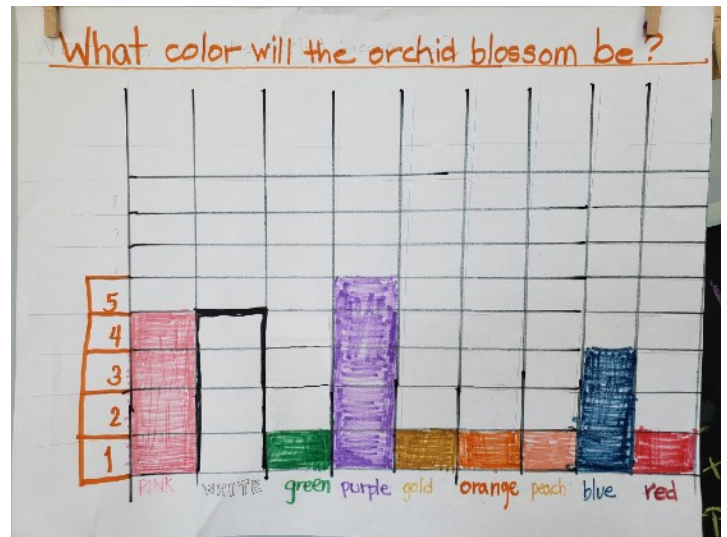 What color will the orchid blossom be?
5
4
3
2
1
PINK WHITE green purple gold orange peach blue red